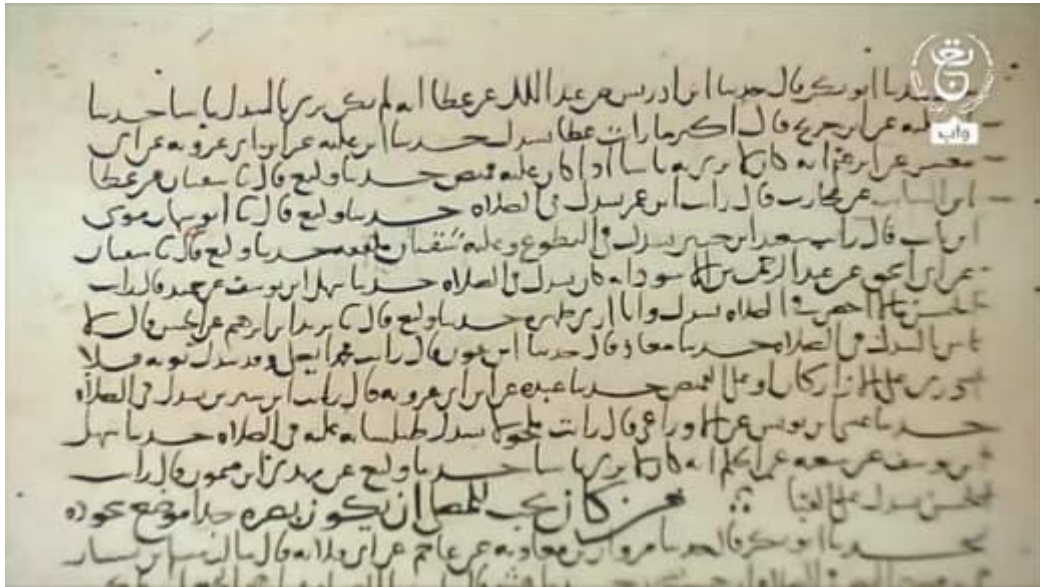 حدثنا ابو بكر قال حدثنا ابن ادريس عن عبد الملك عن عطا انه لم يكن يرى بالسدل باسا حدثنا
ابن عليه عن ابن جريج قال اكثر ما رايت عطا يسدل حدثنا ابن عليه عن ابن ابي عروبه عن ابي
معشر عن ابرهيم انه كان لا يرى به باسا اذا كان عليه قميص حدثنا وكيع قال نا سفيان عن عطا
ابن السايب عن محارب قال رايت ابن عمر يسدل في الصلاه حدثنا وكيع قال نا ابو شهاب موسى
ابن قال رايت سعيد ابن جبير يسدل في التطوع وعليه شقتان ملفقه حدثنا وكيع قال نا سفيان
عن ابي اسحق عن عبد الرحمن بن الاسود انه كان يسدل في الصلاه حدثنا سهل ابن يوسف عن حميد قال رايت
الحسن ما لا احصي في الصلاه يسدل وانا ارى ظهره حدثنا وكيع قال نا يزيد ابن ابرهيم عن الحسن قال لا
باس بالسدل في الصلاه حدثنا معاذ قال حدثنا ابن عون قال رايت محمدا يصلي وقد سدل ثوبه
على الازار كان او على القميص حدثنا عبده عن ابن ابي عروبه قال رايت ابن سيرين يسدل في الصلاه
حدثنا عيسى ابن يونس عن الاوزاعي قال رايت مكحولا يسدل طيلسانه عليه في الصلاه حدثنا سهل
ابن يوسف عن شعبه عن الحكم انه كان لا يرى باسا حدثنا وكيع عن مهدي ابن ميمون قال رايت
الحسن يسدل على القبا من كان يحب للمصلي ان يكون بصره حذا موضع سجوده
حدثنا ابو بكر قال حدثنا مروان بن معاويه عن عاصم عن ابي قلابه قال سالت مسلم ابن يسار
واب